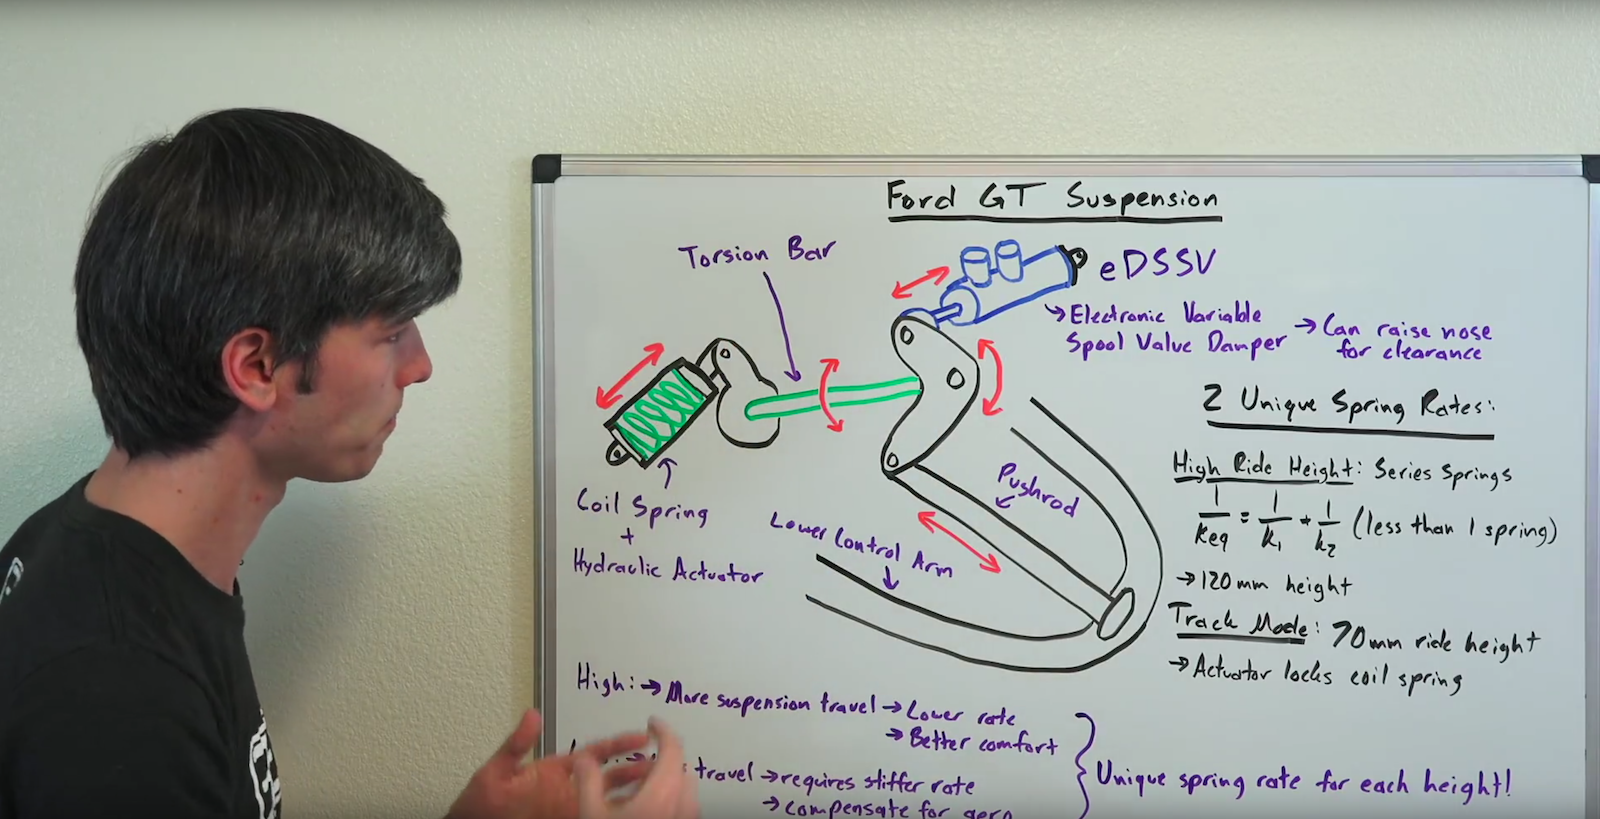 Ford GT Suspension
Torsion Bar
eDSSV
→ Electronic Variable
Spool Value Damper
→ Can raise nose
for clearance
Coil Spring
+
Hydraulic Actuator
Pushrod
Lower Control Arm
2 Unique Spring Rates:
High Ride Height: Series Springs
1/Keq = 1/K1 + 1/K2 (less than 1 spring)
→ 120mm height
Track Mode: 70mm ride height
→ Actuator locks coil spring
High: → More suspension travel → Lower rate
→ Better comfort
travel → requires stiffer rate
→ compensate for aero
Unique spring rate for each height!